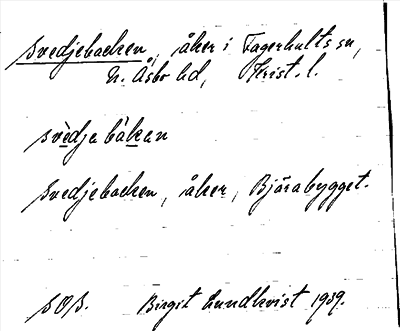 Svedjebacken, åker i Fagerhults sn,
N. Åsbo hd, Krist. l.
svèdjabàkan
Svedjebacken, åker, Bjärabygget.
Birgit Lundkvist 1939.